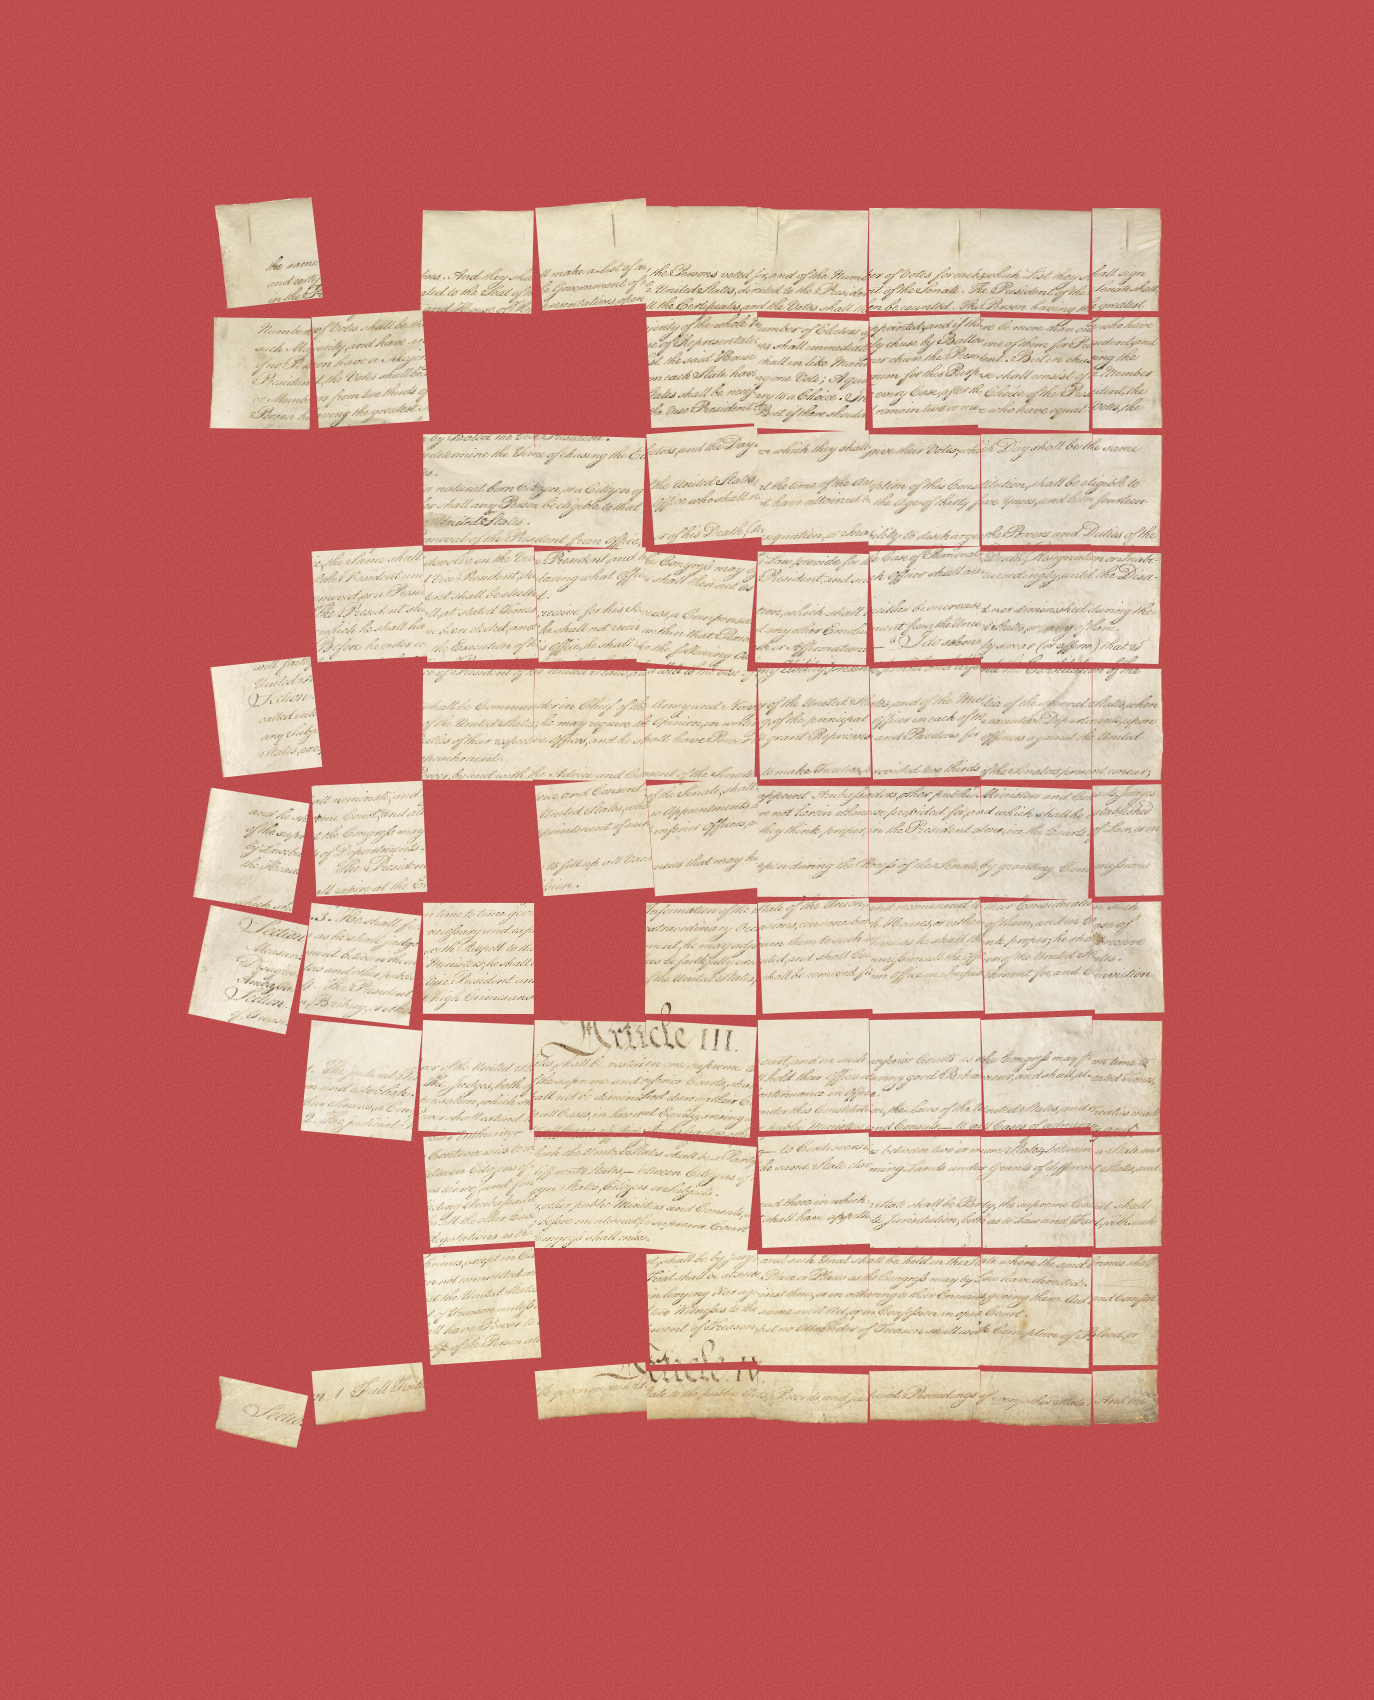 the same tes. And they shall make a List of all the Persons voted for, and of the Number of Votes for each; which List they shall sign
and certify ated to the Seat of the Government of the United States, directed to the President of the Senate. The President of the Senate shall,
in the and House of Representatives open all the Certificates, and the Votes shall then be counted. The Person having the greatest
Number of Votes shall be the jority of the whole Number of Electors appointed; and if there be more than one who have
such Majority, and have an se of Representatives shall immediately chuse by Ballot one of them for President; and
if no Person have a Majority the said House shall in like Manner chuse the President. But in chusing the
President, the Votes shall be from each State having one Vote; A quorum for this Purpose shall consist of a Member
or Members from two thirds of States shall be necessary to a Choice. In every Case, after the Choice of the President, the
Person having the greatest the Vice President. But if there should remain two or more who have equal Votes, the
by Ballot the Vice President.
determine the Time of chusing the Electors, and the Day on which they shall give their Votes; which Day shall be the same
natural born Citizen, or a Citizen of the United States, at the time of the Adoption of this Constitution, shall be eligible to
shall any Person be eligible to that Office who shall not have attained to the Age of thirty five Years, and been fourteen
United States.
moval of the President from Office, or of his Death, Resignation, or Inability to discharge the Powers and Duties of the
the same shall devolve on the Vice President, and the Congress may by Law provide for the Case of Removal, Death, Resignation or Inabi-
of the President and Vice President, declaring what Officer shall then act as President, and such Officer shall act accordingly, until the Disa-
removed, or a President shall be elected.
The President shall, at stated Times, receive for his Services, a Compensation, which shall neither be encreased nor diminished during the
which he shall have been elected, and he shall not receive within that Period any other Emolument from the United States, or any of them.
Before he enter on the Execution of his Office, he shall take the following Oath or Affirmation:— "I do solemnly swear (or affirm) that I
will faith of President of the United States, and will to the best of my Ability, preserve, protect and defend the Constitution of the
United States
Section. shall be Commander in Chief of the Army and Navy of the United States, and of the Militia of the several States, when
called into of the United States; he may require the Opinion, in writing, of the principal Officer in each of the executive Departments, upon
any Subject ties of their respective Offices, and he shall have Power to grant Reprieves and Pardons for Offences against the United
States, exc peachment.
Power, by and with the Advice and Consent of the Senate, to make Treaties, provided two thirds of the Senators present concur;
and he shall nominate, and vice and Consent of the Senate, shall appoint Ambassadors, other public Ministers and Consuls, Judges
of the supreme Court, and all United States, whose Appointments are not herein otherwise provided for, and which shall be established
by Law: but the Congress may pointment of such inferior Officers, as they think proper, in the President alone, in the Courts of Law, or in
the Heads of Departments.
The President to fill up all Vacancies that may happen during the Recess of the Senate, by granting Commissions
which shall expire at the End sion.
Section. 3. He shall from time to time give Information of the State of the Union, and recommend to their Consideration such
Measures as he shall judge necessary and exp extraordinary Occasions, convene both Houses, or either of them, and in Case of
Disagreement between them, with Respect to the ment, he may adjourn them to such Time as he shall think proper; he shall receive
Ambassadors and other public Ministers; he shall Laws be faithfully executed, and shall Commission all the Officers of the United States.
Section. 4. The President, Vice President and of the United States, shall be removed from Office on Impeachment for, and Conviction
of, Treason, Bribery, or other high Crimes and
Article III.
1. The judicial Power of the United States, shall be vested in one supreme Court, and in such inferior Courts as the Congress may from time to
ordain and establish. The Judges, both of the supreme and inferior Courts, shall hold their Offices during good Behaviour, and shall, at stated Times,
their Services, a Compensation, which shall not be diminished during their Continuance in Office.
2. The judicial Power shall extend to all Cases, in Law and Equity, arising under this Constitution, the Laws of the United States, and Treaties made,
public Ministers and Consuls;—to all Cases of admiralty and
Controversies to which the United States shall be a Party;—to Controversies between two or more States;—between a State and
between Citizens of different States,—between Citizens of the same State claiming Lands under Grants of different States, and
thereof, and foreign States, Citizens or Subjects.
cting Ambassadors, other public Ministers and Consuls, and those in which a State shall be Party, the supreme Court shall
In all the other Cases before mentioned, the supreme Court shall have appellate Jurisdiction, both as to Law and Fact, with such
Regulations as the Congress shall make.
Crimes, except in Cases nt, shall be by Jury; and such Trial shall be held in the State where the said Crimes shall
when not committed Trial shall be at such Place or Places as the Congress may by Law have directed.
st the United States in levying War against them, or in adhering to their Enemies, giving them Aid and Comfort.
of Treason unless two Witnesses to the same overt Act, or on Confession in open Court.
shall have Power to ment of Treason, but no Attainder of Treason shall work Corruption of Blood, or
Life of the Person attainted.
Article IV.
Section. 1. Full Faith be given in each State to the public Acts, Records, and judicial Proceedings of every other State. And the